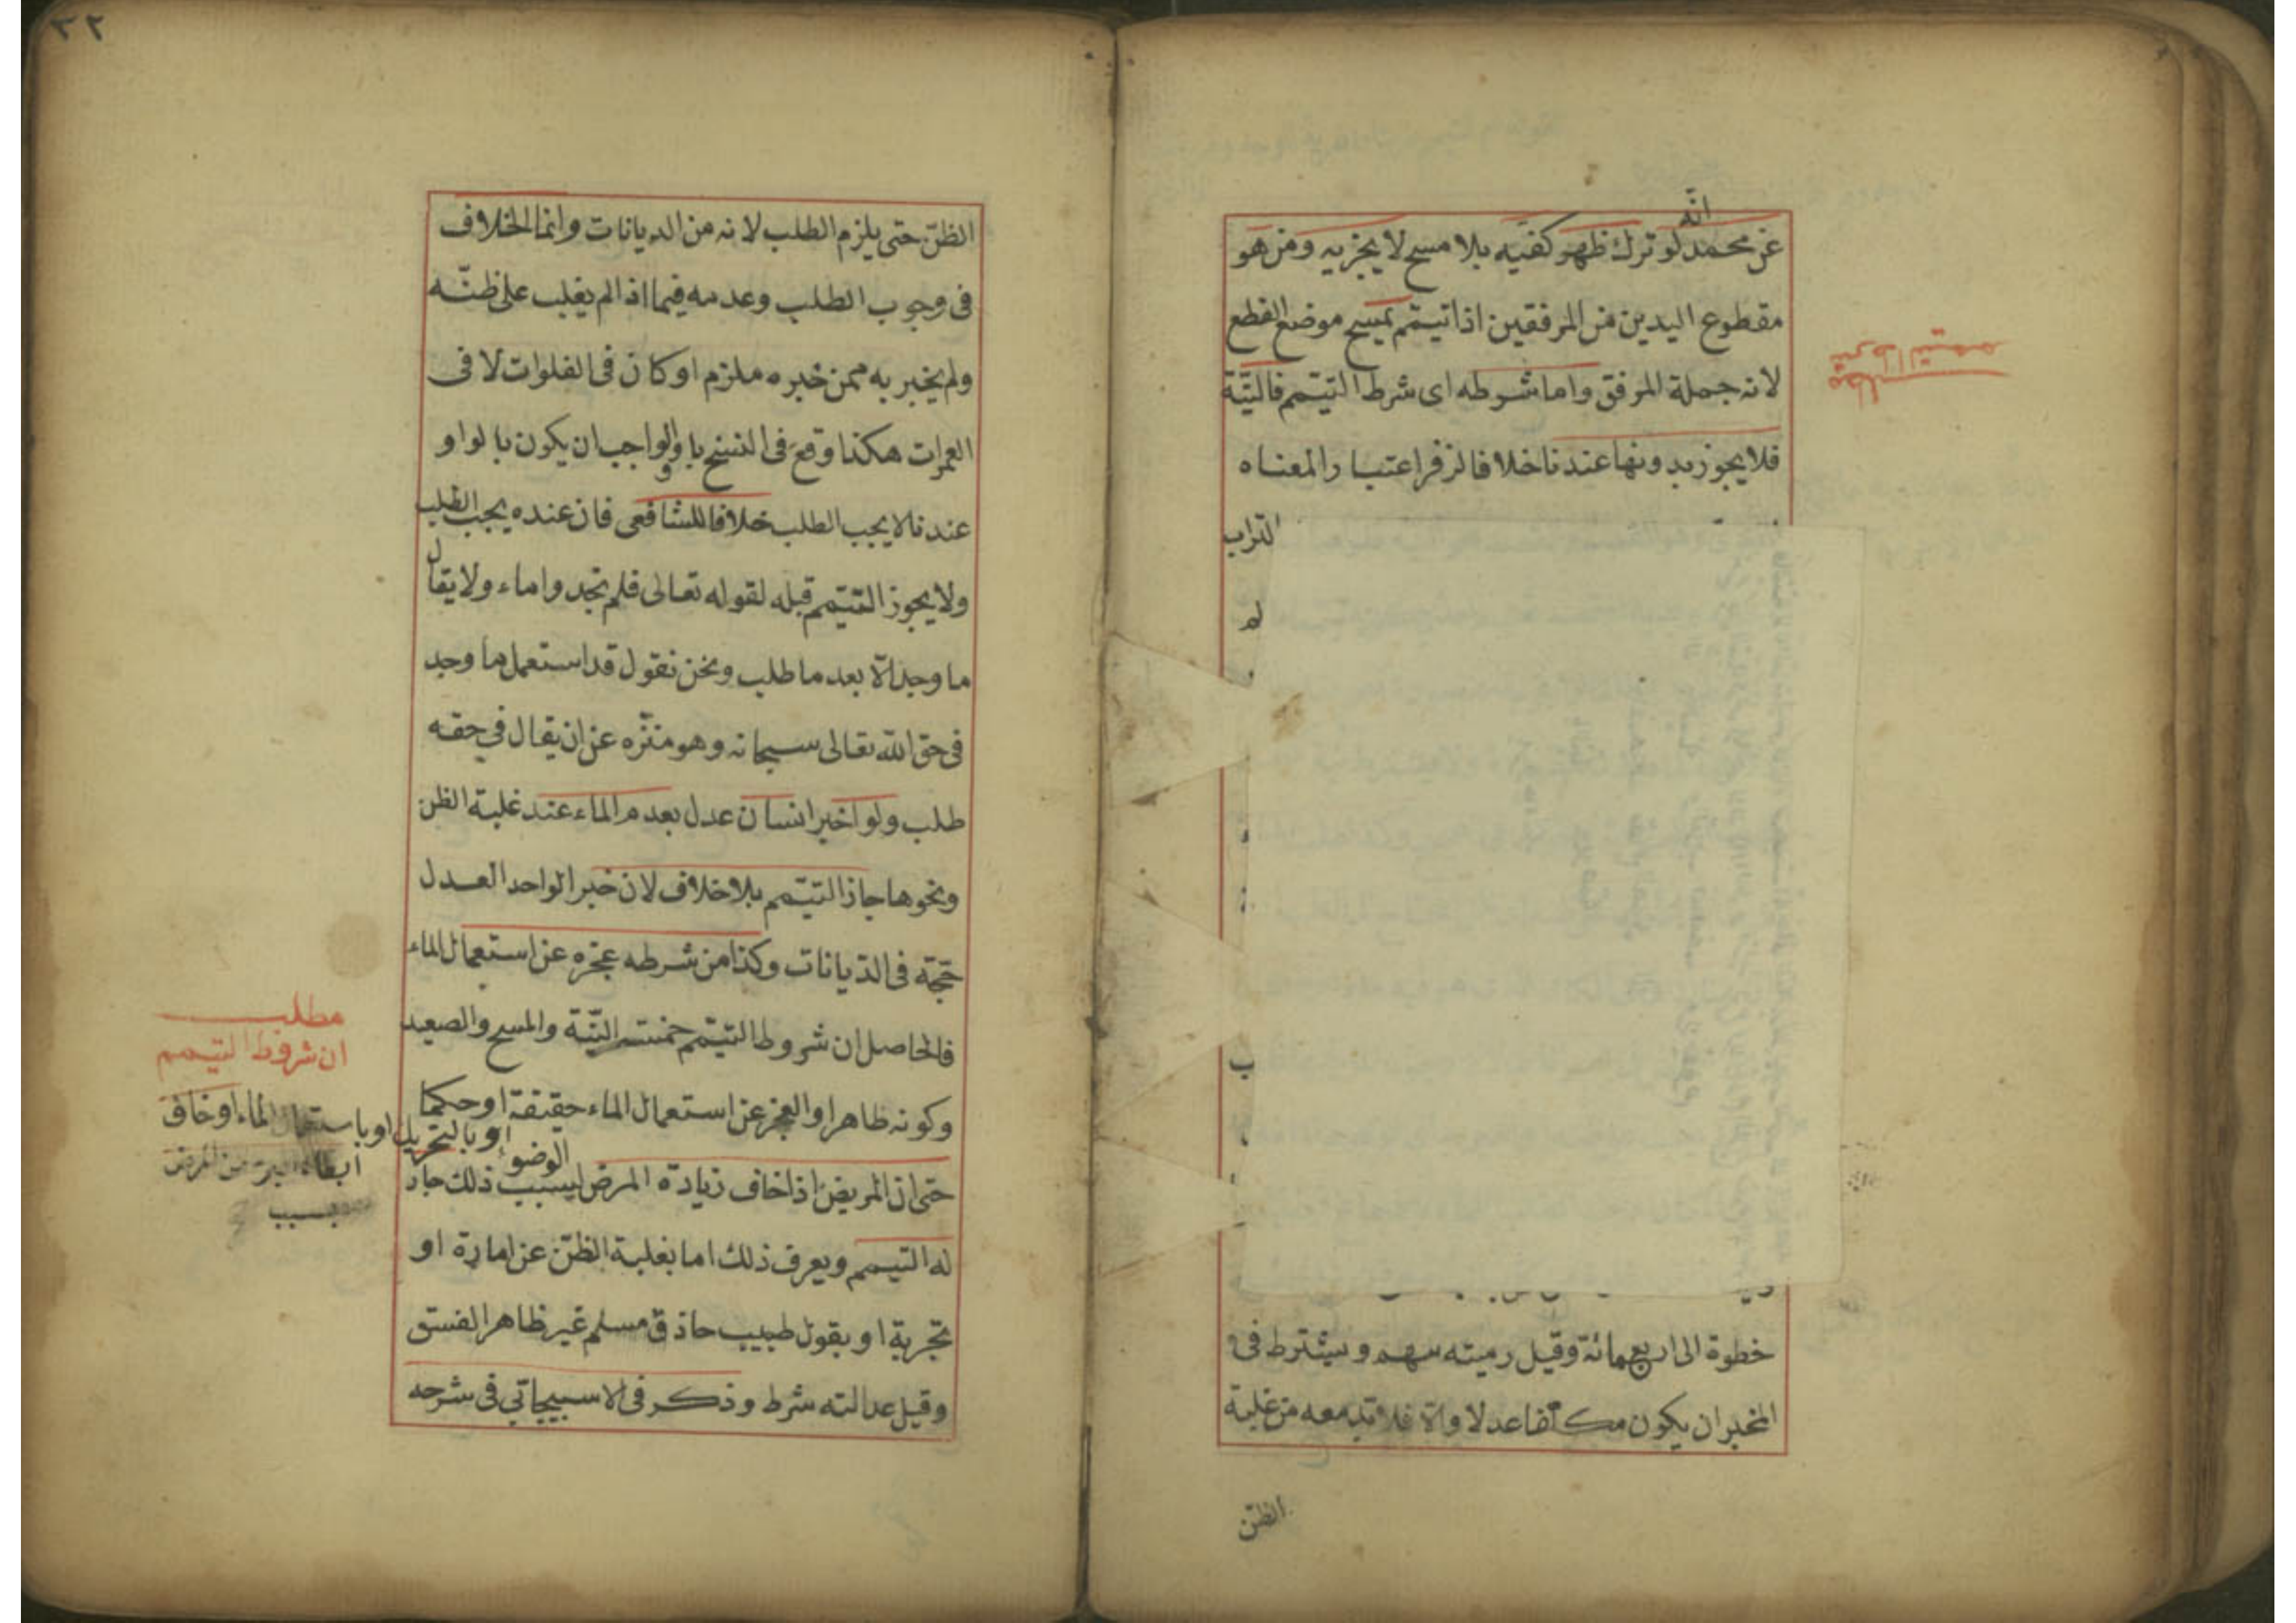 انه
عن محمد لو ترك ظهر كفيه بلا مسح لا يجزيه ومن هو
مقطوع اليدين من المرفقين اذا تيمم يمسح موضع القطع
لانه جملة المرفق واما شرطه اى شرط التيمم فالنيّة
فلا يجوز بدونها عندنا خلافا لزفر اعتبارا لمعناه
التراب
لم
خطوة الى اربعمائة وقيل رميته سهم ويشترط فى
المخبر ان يكون مكلفا عدلا والا فلا بد معه من غلبة
الظن
مطلب
شرط التيمم
٣٢
الظنّ حتى يلزم الطلب لانه من الديانات وانما الخلاف
فى وجوب الطلب وعدمه فيما اذا لم يغلب على ظنّه
ولم يخبر به ممن خبره ملزم او كان فى الفلوات لا فى
العمرات هكذا وقع فى النسخ باو والواجب ان يكون بالواو
عندنا لا يجب الطلب خلافا للشافعى فان عنده يجب الطلب
ولا يجوز التيمّم قبله لقوله تعالى فلم تجدوا ماء ولا يقال
ما وجد الّا بعد ما طلب ونحن نقول قد استعمل ما وجد
فى حق الله تعالى سبحانه وهو منزّه عن ان يقال في حقه
طلب ولو اخبر انسان عدل بعدم الماء عند غلبة الظن
ونحوها جاز التيمّم بلا خلاف لان خبر الواحد العدل
حجّة فى الديانات وكذا من شرطه عجزه عن استعمال الماء
فالحاصل ان شروط التيمّم خمسة النيّة والمسح والصعيد
وكونه طاهرا والعجز عن استعمال الماء حقيقة او حكما
حتى ان المريض اذا خاف زيادة المرض بسبب ذلك جاز
له التيمم ويعرف ذلك اما بغلبة الظنّ عن امارة او
تجربة او بقول طبيب حاذق مسلم غير ظاهر الفسق
وقيل عدالته شرط وذكر فى الاسبيجابي فى شرحه
مطلب
ان شروط التيمم
الوضوء او بالتحريك او باستعمال الماء او خاف
ابطاء البرء من المرض
بسبب